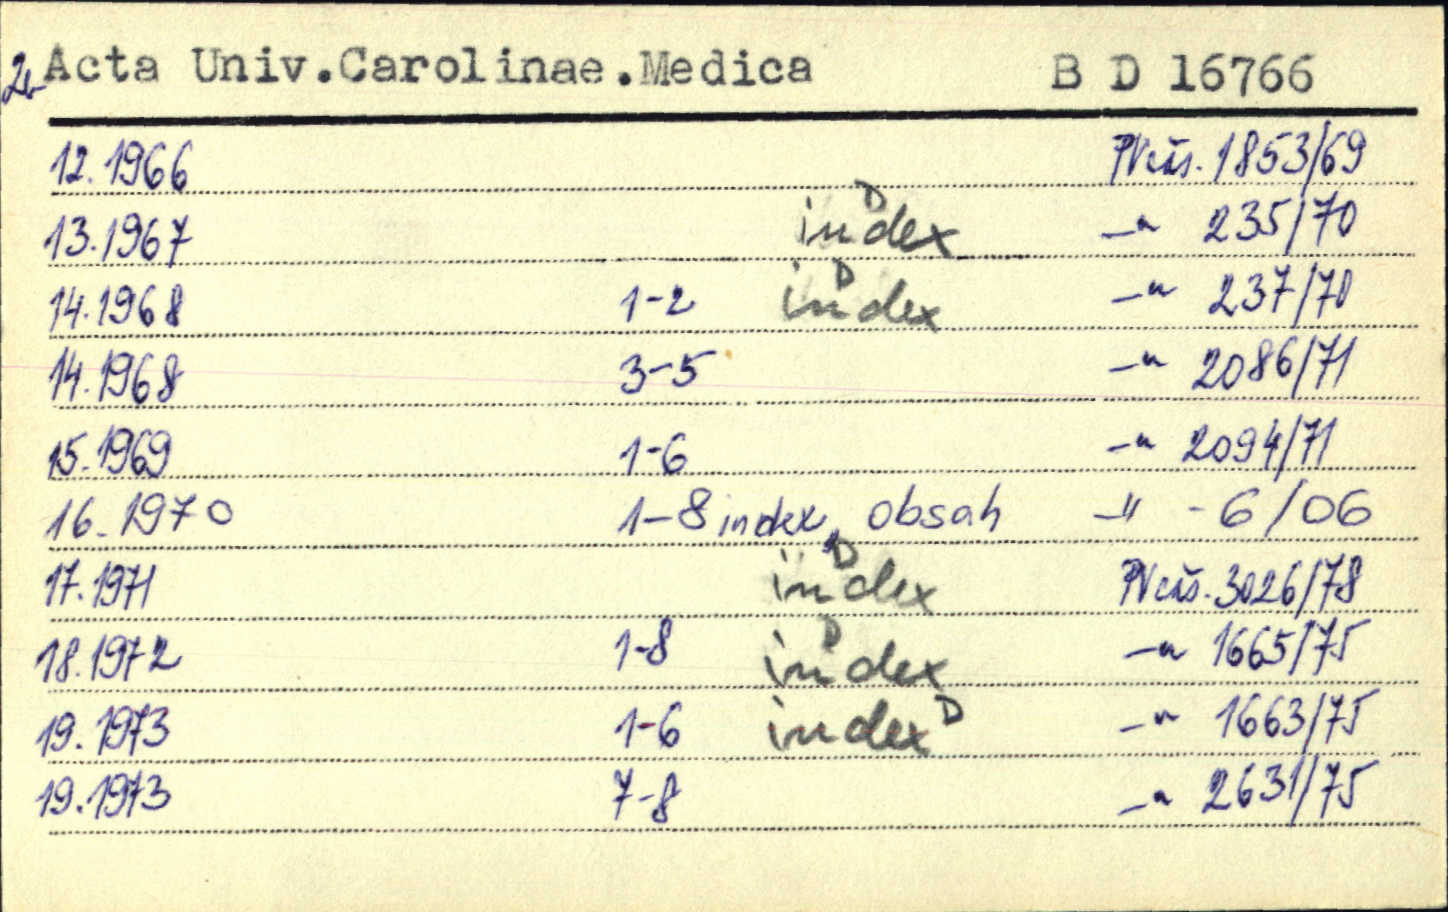 2. Acta Univ.Carolinae.Medica B D 16766
12.1966 PVčís. 1853/69
13.1967 index D -"- 235/70
14.1968 1-2 index D -"- 237/70
14.1968 3-5 -"- 2086/71
15.1969 1-6 -"- 2094/71
16.1970 1-8 index, obsah -"- 6/06
17.1971 index D PVčís. 3026/78
18.1972 1-8 index D -"- 1665/75
19.1973 1-6 index D -"- 1663/75
19.1973 7-8 -"- 2631/75